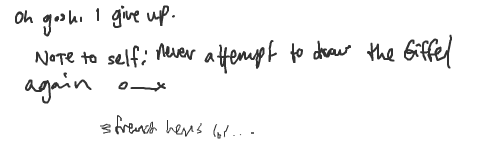 Oh gosh. I give up.
Note to self: Never attempt to draw the Eiffel
again
french hens